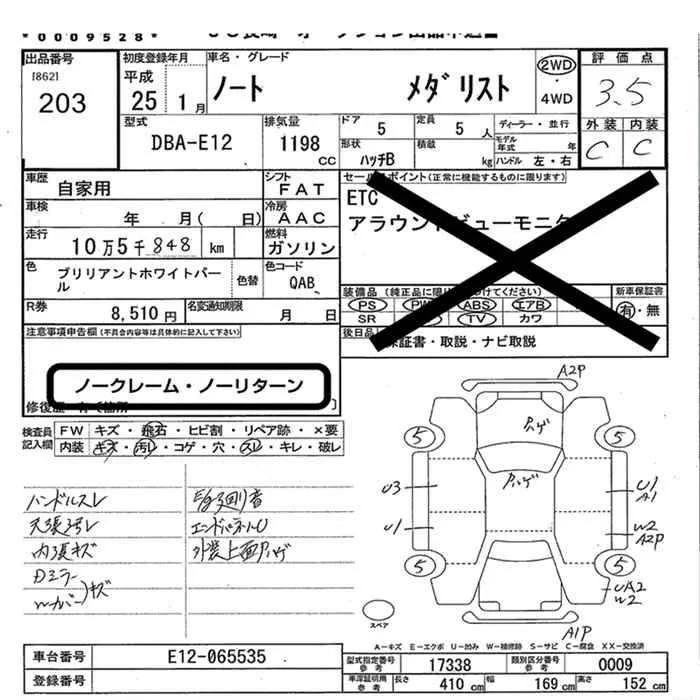 *0009528*
出品番号
[862]
203
初度登録年月
平成
25 1月
車名・グレード
ノート メダリスト
2WD
・
4WD
評価点
3.5
外装 内装
C C
型式
DBA-E12
排気量
1198
cc
ドア
5
定員
5 人
ディーラー・並行
モデル年式 年
形状
ハッチB
積載
kg
ハンドル 左・右
車歴
自家用
シフト
FAT
車検
年 月( 日)
冷房
AAC
走行
10万5千848 km
燃料
ガソリン
色
ブリリアントホワイトパール
色替
色コード
QAB
R券
8,510円
名変通知期限
月 日
セールスポイント(正常に機能するものに限ります)
ETC
アラウンドビューモニタ
装備品
PS
ABS
エアB
SR
TV
カワ
新車保証書
有・無
後日品
保証書・取説・ナビ取説
注意事項申告欄(不具合内容等は具体的に記入して下さい)
ノークレーム・ノーリターン
検査員記入欄
FW キズ・飛石・ヒビ割・リペア跡・×要
内装 キズ・汚レ・コゲ・穴・スレ・キレ・破レ
ハンドルスレ
天張汚レ
内張キズ
エンドパネルU
外装上面ハゲ
A2P
ハゲ
ハゲ
5
5
5
5
U3
U1
U1
A1
W2
A2P
UA2
W2
A1P
スペア
A-キズ E-エクボ U-凹み W-補修跡 S-サビ C-腐食 XX-交換済
車台番号
E12-065535
登録番号
型式指定番号
参考
17338
類別区分番号
参考
0009
車庫証明用
参考
長さ
410 cm
幅
169 cm
高さ
152 cm